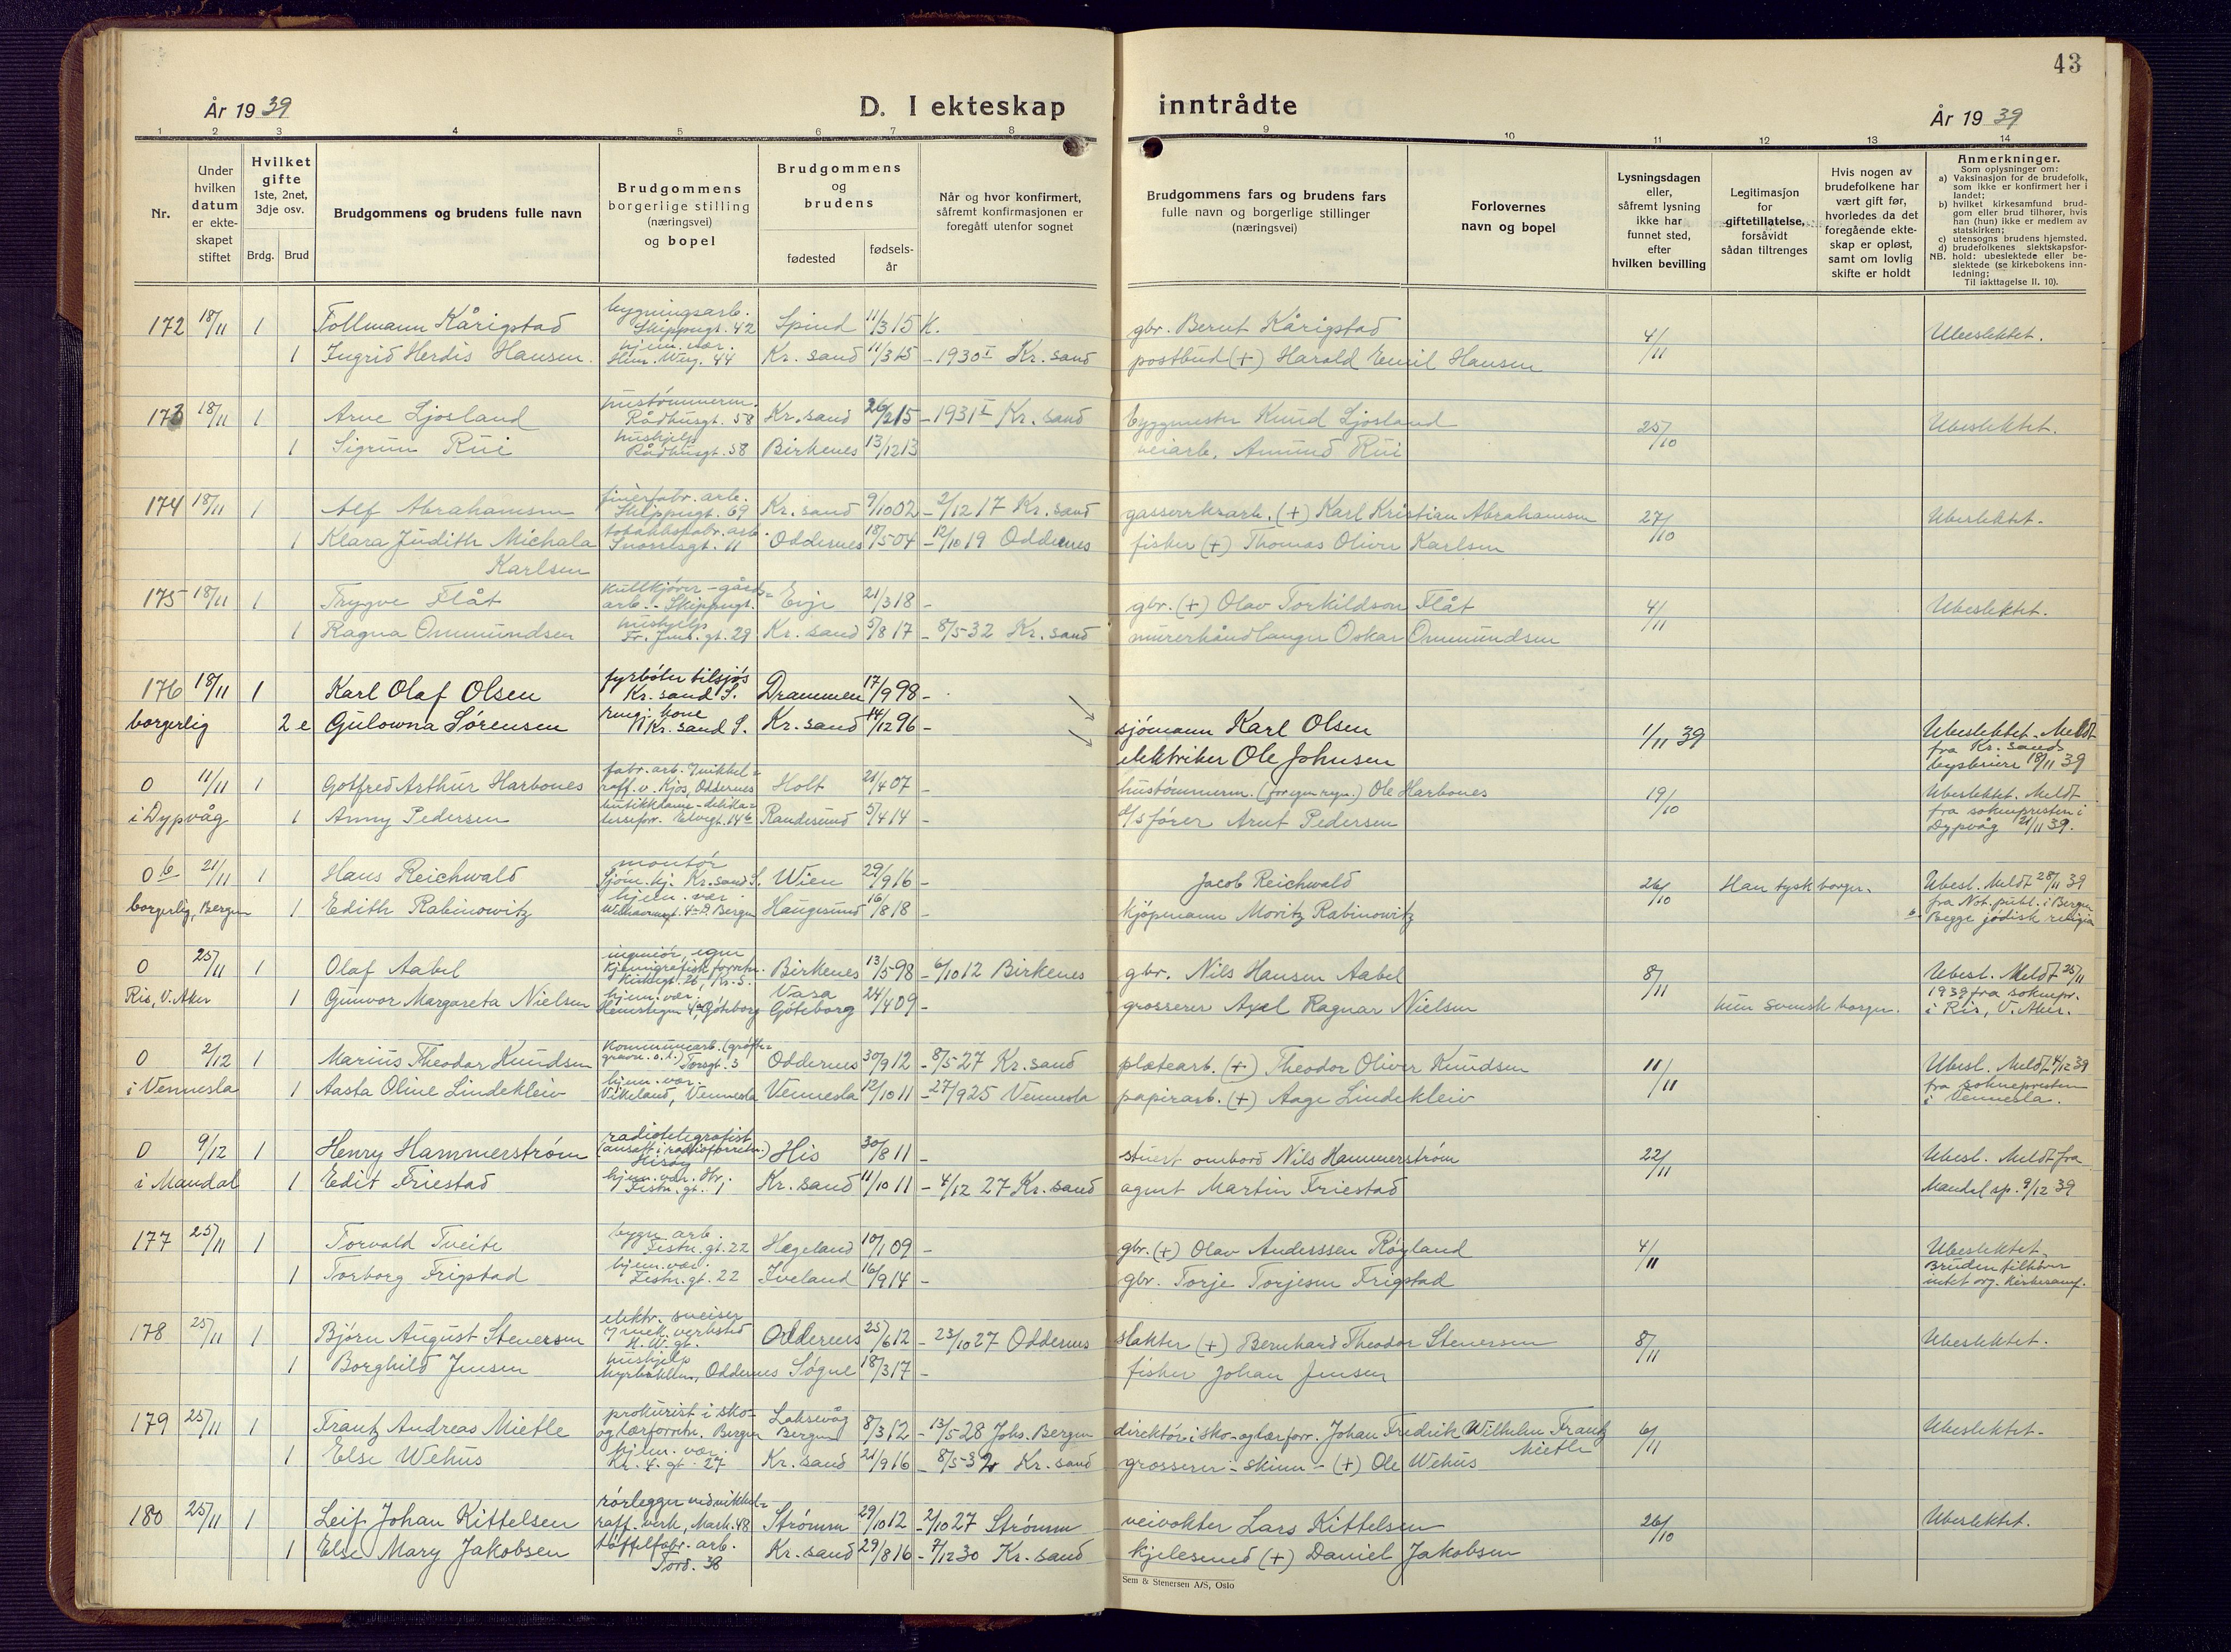 43
År 1939
D. I ekteskap inntrådte
År 1939
1 2 3 4 5 6 7 8 9 10 11 12 13 14
Nr.
Under hvilken datum er ekteskapet stiftet
Hvilket gifte 1ste, 2net, 3dje osv.
Brdg. Brud
Brudgommens og brudens fulle navn
Brudgommens borgerlige stilling (næringsvei) og bopel
Brudgommens og brudens
fødested
fødselsår
Når og hvor konfirmert, såfremt konfirmasjonen er foregått utenfor sognet
Brudgommens fars og brudens fars fulle navn og borgerlige stillinger (næringsvei)
Forlovernes navn og bopel
Lysningsdagen eller, såfremt lysning ikke har funnet sted, efter hvilken bevilling
Legitimasjon for giftetillatelse, forsåvidt sådan tiltrenges
Hvis nogen av brudefolkene har vært gift før, hvorledes da det foregående ekteskap er opløst, samt om lovlig skifte er holdt
Anmerkninger.
Som oplysninger om:
a) Vaksinasjon for de brudefolk, som ikke er konfirmert her i landet;
b) hvilket kirkesamfund brudgom eller brud tilhører, hvis han (hun) ikke er medlem av statskirken;
c) utensogns brudens hjemsted.
d) brudefolkenes slektskapsforhold: ubeslektede eller beslektede (se kirkebokens innledning;
NB.
Til iakttagelse II. 10).
172 18/11 1 Tollmann Kårigstad bygningsarb. Skippergt. 42 Spind 11/3 15 K. gbr. Bernt Kårigstad 4/11 Ubeslektet.
1 Ingrid Herdis Hansen. hjem. vær. Henr. Werg. 44 Kr. sand 11/3 15 - 1930 I Kr. sand postbud (+) Harald Emil Hansen
173 18/11 1 Arne Ljosland hustømmerm. Rådhusgt. 58 Kr. sand 26/2 15 - 1931 I Kr. sand byggmester Knud Ljosland 25/10 Ubeslektet.
1 Sigrun Rui hushjelp Rådhusgt. 58 Birkenes 13/12 13 veiarb. Amund Rui
174 18/11 1 Alf Abrahamsen finérfabr. arb. Skippergt. 69 Kr. sand 9/10 02 - 2/12 17 Kr. sand gassverksarb. (+) Karl Kristian Abrahamsen 27/10 Ubeslektet.
1 Klara Judith Michala Karlsen tobakksfabr. arb. Snorresgt. 11 Oddernes 18/5 04 - 12/10 19 Oddernes fisker (+) Thomas Oliver Karlsen
175 18/11 1 Trygve Flåt kullkjører - gårds= arb. - Skippergt. Evje 21/3 18 - gbr. (+) Olav Torkildson Flåt 4/11 Ubeslektet.
1 Ragna Ommundsen hushjelp Kr. sand 5/8 17 - 8/5-32 Kr. sand murerhåndlanger Oskar Ommundsen
176 18/11 1 Karl Olaf Olsen fyrbøter tilsjøs Kr. sand S. Drammen 17/9 98 - sjømann Karl Olsen
borgerlig 2 e Gulowna Sørensen rengj. kone Kr. sand S. Kr. sand 14/12 96 - elektriker Ole Johnsen 1/11 39 Ubeslektet. Meldt fra Kr. sands byskriver 18/11 39
0 11/11 1 Gotfred Arthur Harbones fabr. arb. v/nikkel= raff. v. Kjos, Oddernes Holt 21/4 07 - hustømmerm. Ole Harbones 19/10 Ubeslektet. Meldt fra soknepresten i Dypvåg 21/11 39.
i Dypvåg 1 Anny Pedersen butikkdame - delika= tesseforr. Elvegt. 14 b Randesund 5/4 14 - d/s fører Arnt Pedersen
0 b 21/11 1 Hans Reichwald montør Sjøm. hj. Kr. sand S. Wien 29/9 16 - Jacob Reichwald 26/10 Han tysk borger. Ubesl. Meldt 28/11 39 fra Not. publ. i Bergen
borgerlig, Bergen 1 Edith Rabinowitz hjem. vær. Bergen Haugesund 16/8 18 - kjøpmann Moritz Rabinowitz b Begge jødisk religion
0 25/11 1 Olaf Aabel ingeniør, egen kjemigrafisk forretn. Kr. S. Birkenes 13/5-98 - 6/10 12 Birkenes gbr. Nils Hansen Aabel 8/11 Ubesl. Meldt 25/11 1939 fra soknepr. i Ris, V. Aker.
Ris, V. Aker 1 Gunvor Margareta Nielsen hjem. vær. Göteborg Vasa Göteborg 24/4 09 - grosserer Axel Ragnar Nielsen hun svensk borger.
0 2/12 1 Marius Theodor Knudsen kommunearb. (grøfte= graver o. l.) Torsgt. 3 Oddernes 30/9 12 - 8/5 27 Kr. sand platearb. (+) Theodor Oliver Knudsen 11/11 Ubesl. Meldt 4/12 39 fra soknepresten i Vennesla.
i Vennesla 1 Aasta Oline Lindekleiv hjem. vær. Vikeland, Vennesla Vennesla 12/10 11 - 27/9 25 Vennesla papirarb. (+) Aage Lindekleiv
0 9/12 1 Henry Hammerstrøm radiotelegrafist (ansatt i radioforretn.) Hisøy His 30/8 11 - stuert ombord Nils Hammerstrøm 22/11 Ubesl. Meldt fra Mandal sp. 9/12 39
i Mandal 1 Edit Friestad hjem. vær. Festn. gt. 1 Kr. sand 11/10 11 - 4/12 27 Kr. sand agent Martin Friestad
177 25/11 1 Torvald Tveite bygn. arb. Festn. gt. 22 Hægeland 10/1 09 - gbr. (+) Olav Anderssen Røyland 4/11 Ubeslektet. Bruden tilhører intet org. kirkesamf.
1 Torborg Frigstad hjem. vær. Festn. gt. 22 Iveland 16/9 14 - gbr. Torje Torjesen Frigstad
178 25/11 1 Bjørn August Stenersen elektr. sveiser v/ mek. verksted H. W. gt. Oddernes 25/6 12 - 23/10 27 Oddernes slakter (+) Bernhard Theodor Stenersen 8/11 Ubeslektet.
1 Borghild Jensen hushjelp Myrbakken, Oddernes Søgne 18/3 17 - fisker Johan Jensen
179 25/11 1 Frantz Andreas Mietle prokurist i sko- og lærforretn. Bergen Laksevåg Bergen 8/3 12 - 13/5-28 Johs. Bergen direktør i sko- og lærforr. Johan Fredrik Wilhelm Frantz Mietle 6/11 Ubeslektet.
1 Else Wehus hjem. vær. Kr. 4. gt. 27 Kr. sand 21/9 16 - 8/5-32 Kr. sand grosserer - skinn - (+) Ole Wehus
180 25/11 1 Leif Johan Kittelsen rørlegger ved nikkel= raff. verk, Mark. 48 Strømm 29/10 12 - 2/10 27 Strømm veivokter Lars Kittelsen 26/10 Ubeslektet.
1 Else Mary Jakobsen tøffelfabr. arb. Tord. 38 Kr. sand 29/8 16 - 7/12 30 Kr. sand kjelesmed (+) Daniel Jakobsen
Sem & Stenersen A/S, Oslo